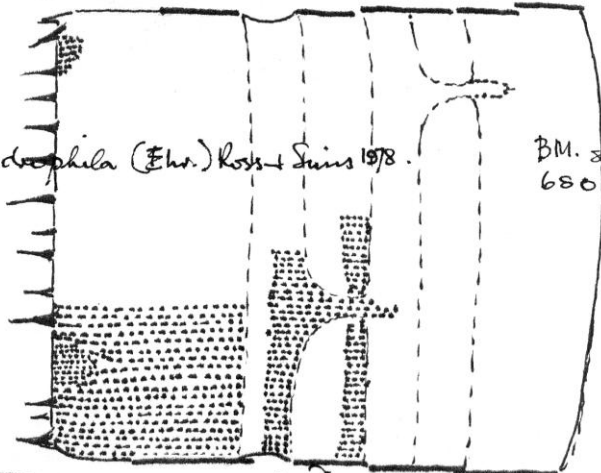 drophila (Ehr.) Ross & Sims 1978.
BM. 8
680